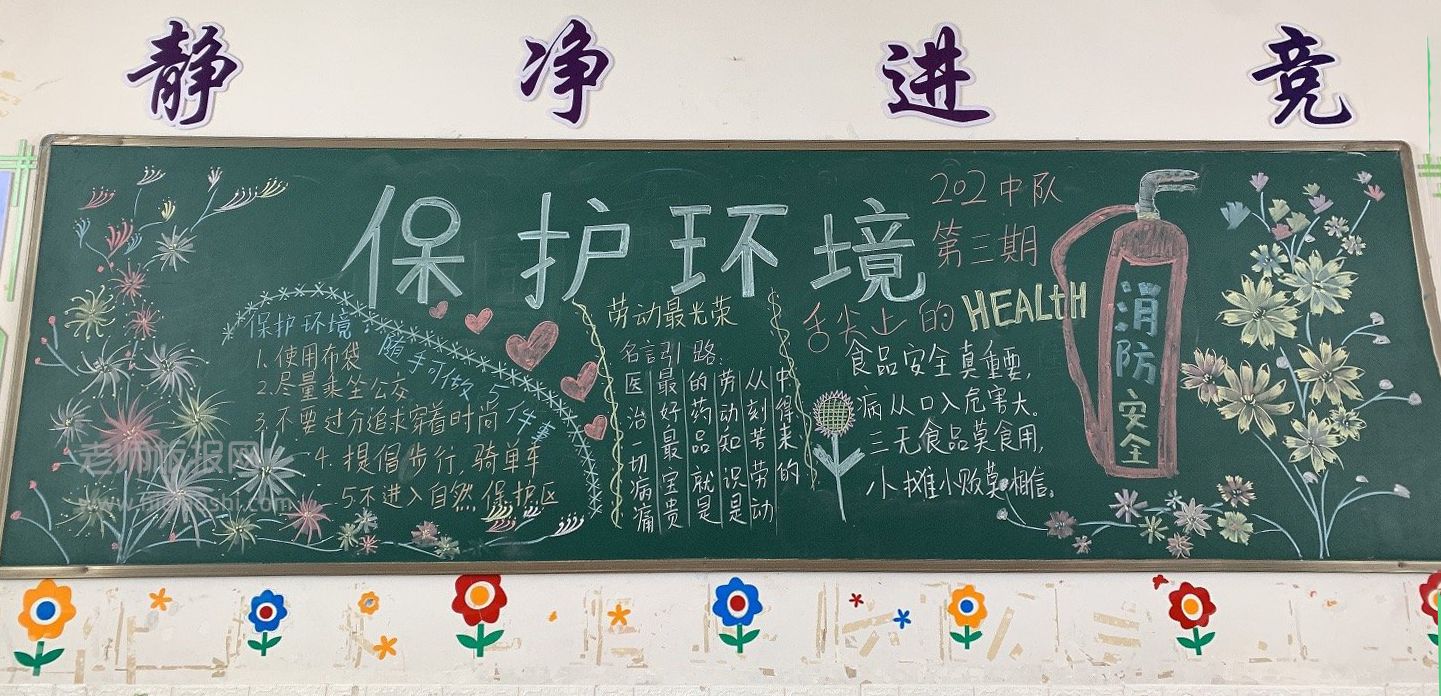 静 净 进 竞
保护环境
202中队
第三期
保护环境
随手可做5件事
1.使用布袋
2.尽量乘坐公交
3.不要过分追求穿着时尚
4.提倡步行,骑单车
5不进入自然保护区
劳动最光荣
名言引路:
医治一切病痛
最好最宝贵
的药品就是
劳动知识是
从刻苦劳动
中得来的
舌尖上的HEALtH
食品安全真重要,
病从口入危害大。
三无食品莫食用,
小摊小贩莫相信。
消防安全
老师板报网